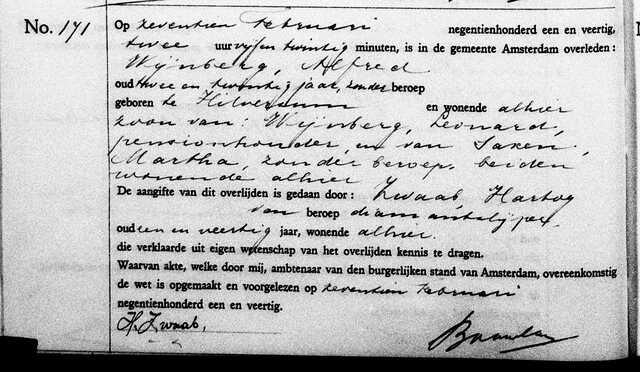 No. 171
Op zeventien Februari negentienhonderd een en veertig,
twee uur vijf en twintig minuten, is in de gemeente Amsterdam overleden:
Wijnberg, Alfred
oud twee en twintig jaar, zonder beroep
geboren te Hilversum en wonende alhier
zoon van: Wijnberg, Leonard,
pensionhouder, en van Saxen,
Martha, zonder beroep, beiden
wonende alhier
De aangifte van dit overlijden is gedaan door: Zwaab, Hartog
van beroep diamantslijper
oud een en veertig jaar, wonende alhier.
die verklaarde uit eigen wetenschap van het overlijden kennis te dragen.
Waarvan akte, welke door mij, ambtenaar van den burgerlijken stand van Amsterdam, overeenkomstig
de wet is opgemaakt en voorgelezen op zeventien Februari
negentienhonderd een en veertig.
H. Zwaab,